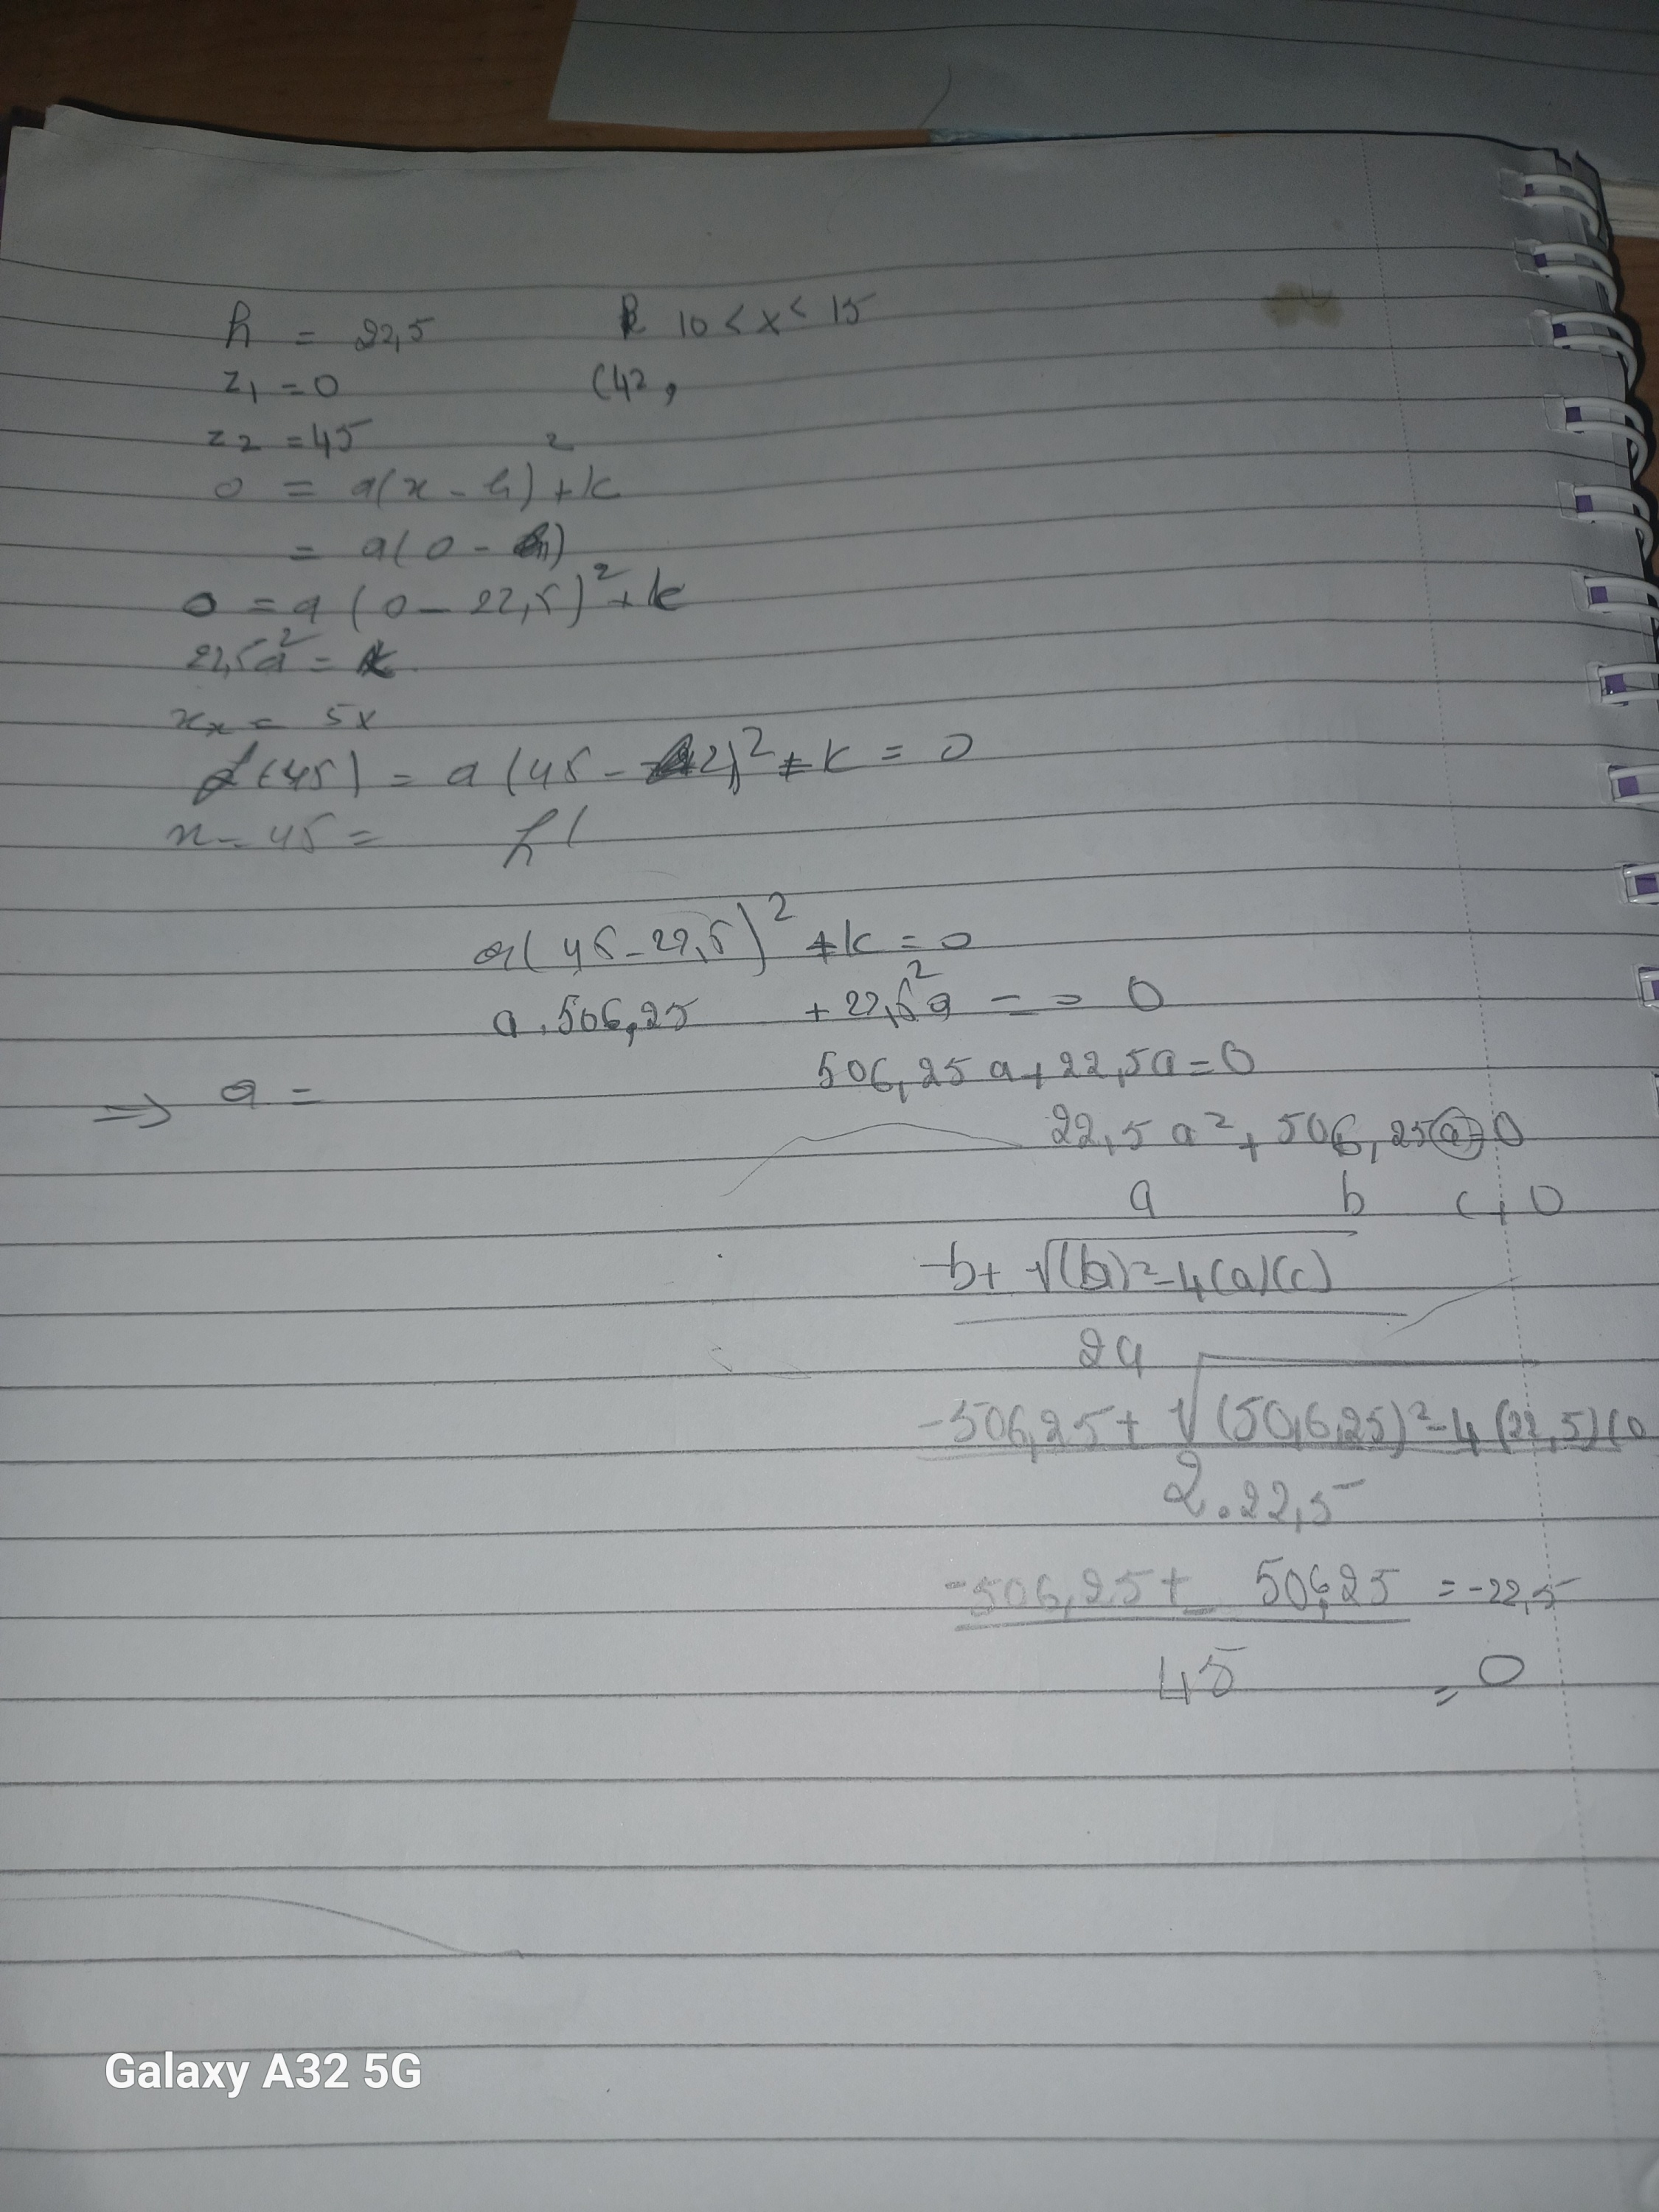 h = 22,5
k 10 < x < 15
z1 = 0
(42,
z2 = 45
0 = a(x - h)² + k
= a(0 -
0 = a(0 - 22,5)² + k
22,5a² = k
5x
f(45) = a(45 - 2)² + k = 0
x - 45 = f(
a(45 - 22,5)² + k = 0
a . 506,25 + 22,5²a = = 0
506,25a + 22,5a = 0
⇒ a =
22,5 a² + 506,25(a) = 0
a b c, 0
-b + √(b)² - 4(a)(c)
2a
-506,25 + √(50,6,25)² - 4(22,5)(0
2.22,5
-506,25 ± 506,25 = -22,5
45 = 0
Galaxy A32 5G